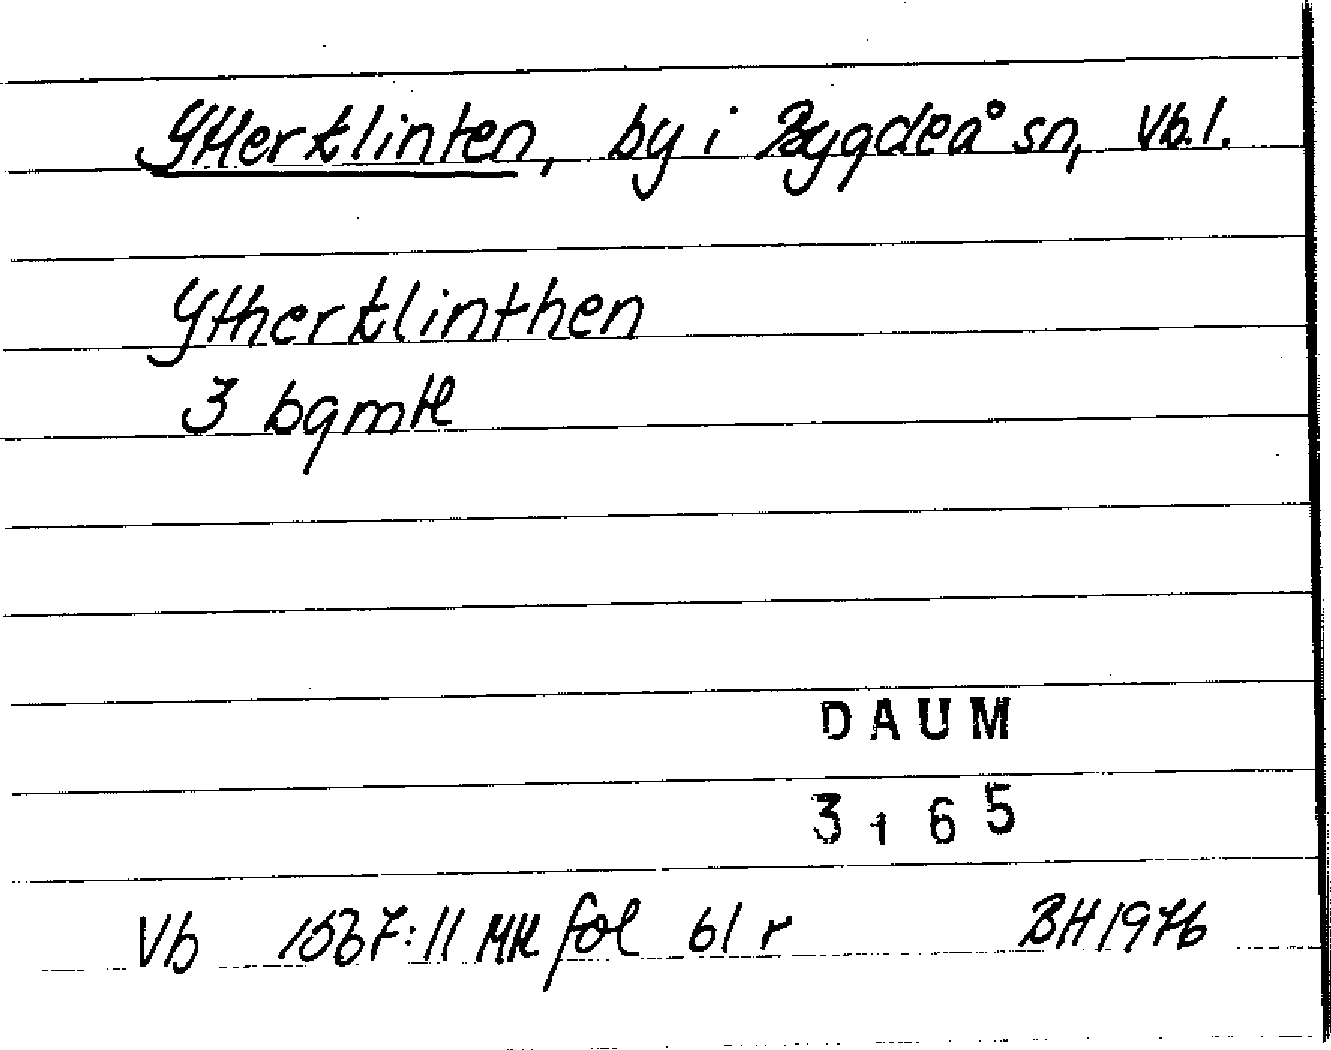 Ytterklinten, by i Bygdeå sn, Vb.l.
Ytherklinthen
3 bgmtl
DAUM
3165
Vb 1567:11 Mtl fol 61 r BH 1976